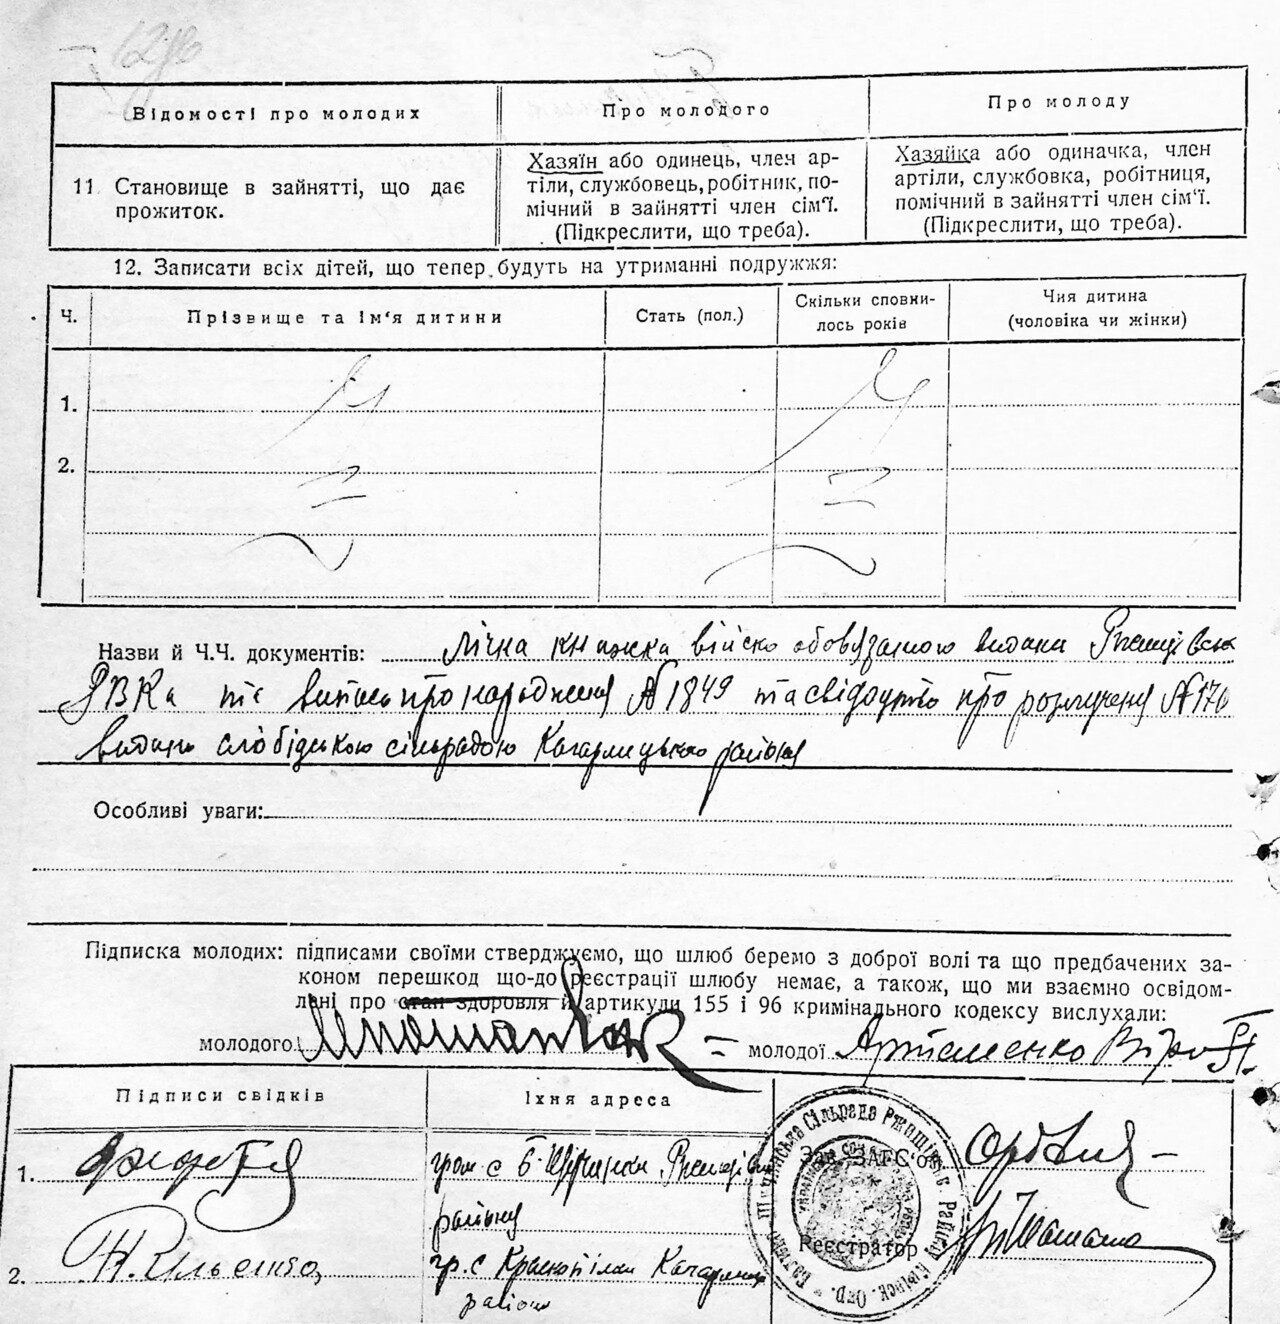 Відомості про молодих
Про молодого
Про молоду
11. Становище в зайнятті, що дає
прожиток.
Хазяїн або одинець, член ар-
тілі, службовець, робітник, по-
мічний в зайнятті член сім'ї.
(Підкреслити, що треба).
Хазяйка або одиначка, член
артіли, службовка, робітниця,
помічний в зайнятті член сім'ї.
(Підкреслити, що треба).
12. Записати всіх дітей, що тепер будуть на утриманні подружжя:
Ч.
Прізвище та ім'я дитини
Стать (пол.)
Скільки сповни-
лось років
Чия дитина
(чоловіка чи жінки)
1.
2.
Назви й Ч.Ч. документів: Лічна книжка військо обовязаного видана
РВКа та випись про народження № 1849 та свідоцтво про розлучення № 170
видано слобідською сільрадою Кагарлицького району
Особливі уваги:
Підписка молодих: підписами своїми стверджуємо, що шлюб беремо з доброї волі та що предбачених за-
коном перешкод що-до реєстрації шлюбу немає, а також, що ми взаємно освідом-
лені про стан здоровля й артикули 155 і 96 кримінального кодексу вислухали:
молодого
молодої Артеменко
Підписи свідків
Їхня адреса
1.
гром. с Б.
району
2.
гр. с Кагарлицьк
району
Зав. ЗАГС'ом
Реєстратор
Сільрада Ржищівськ. Району